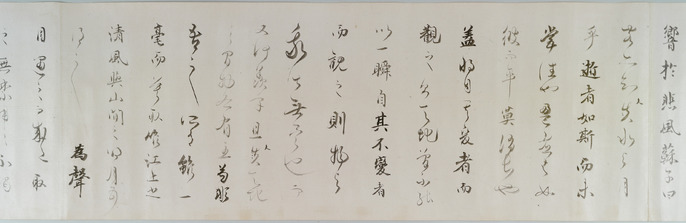 響於悲風蘇子曰
客亦知夫水與月
乎逝者如斯而未
嘗往也盈虛者如
彼而卒莫消長也
蓋將自其變者而
觀之則天地曾不能
以一瞬自其不變者
而觀之則物與
我皆無盡也而
又何羨乎且夫天地
之間物各有主苟非
吾之所有雖一
毫而莫取惟江上之
清風與山間之明月耳
得之而為聲
目遇之而成色取
之無禁用之不竭